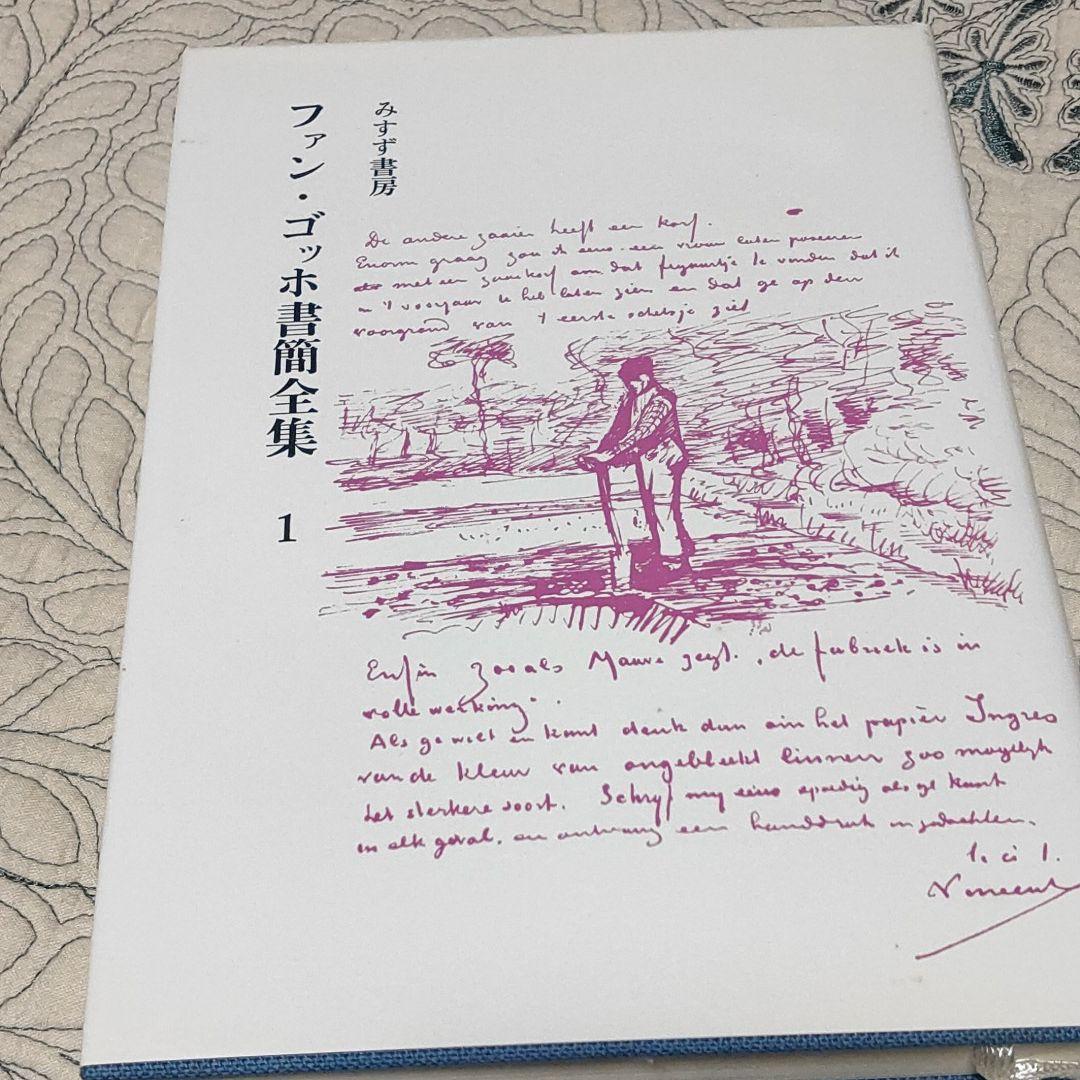 みすず書房
ファン・ゴッホ書簡全集 1
De andere zaaier heeft een korf.
Enorm graag zou ik eens een vrouw laten poseeren
met een zaaikorf om dat figuurtje te vinden dat ik
u 't voorjaar heb laten zien en dat ge op den
voorgrond van 't eerste schetsje ziet
Enfin zooals Mauve zegt, de fabriek is in
volle werking.
Als ge wilt en kunt denk dan om het papier Ingres
van de kleur van ongebleekt linnen zoo mogelijk
het sterkere soort. Schryf my eens spoedig als ge kunt
in elk geval, en ontvang een handdruk in gedachten.
t. à t.
Vincent